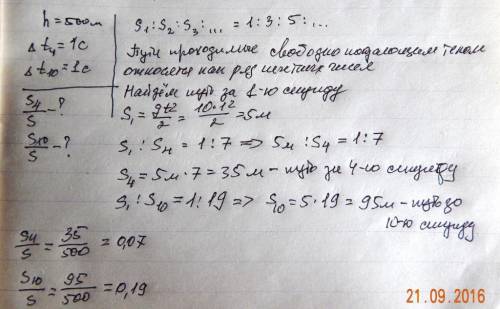 h = 500м
Δt₄ = 1с
Δt₁₀ = 1с
S₄/S - ?
S₁₀/S - ?
S₁ : S₂ : S₃ : ... = 1 : 3 : 5 : ...
Пути проходимые свободно падающем телом
относятся как ряд нечетных чисел
Найдём путь за 1-ю секунду
S₁ = gt²/2 = 10·1²/2 = 5м
S₁ : S₄ = 1:7 => 5м : S₄ = 1:7
S₄ = 5м · 7 = 35м - путь за 4-ю секунду
S₁ : S₁₀ = 1:19 => S₁₀ = 5·19 = 95м - путь за
10-ю секунду
S₄/S = 35/500 = 0,07
S₁₀/S = 95/500 = 0,19
21.09.2016